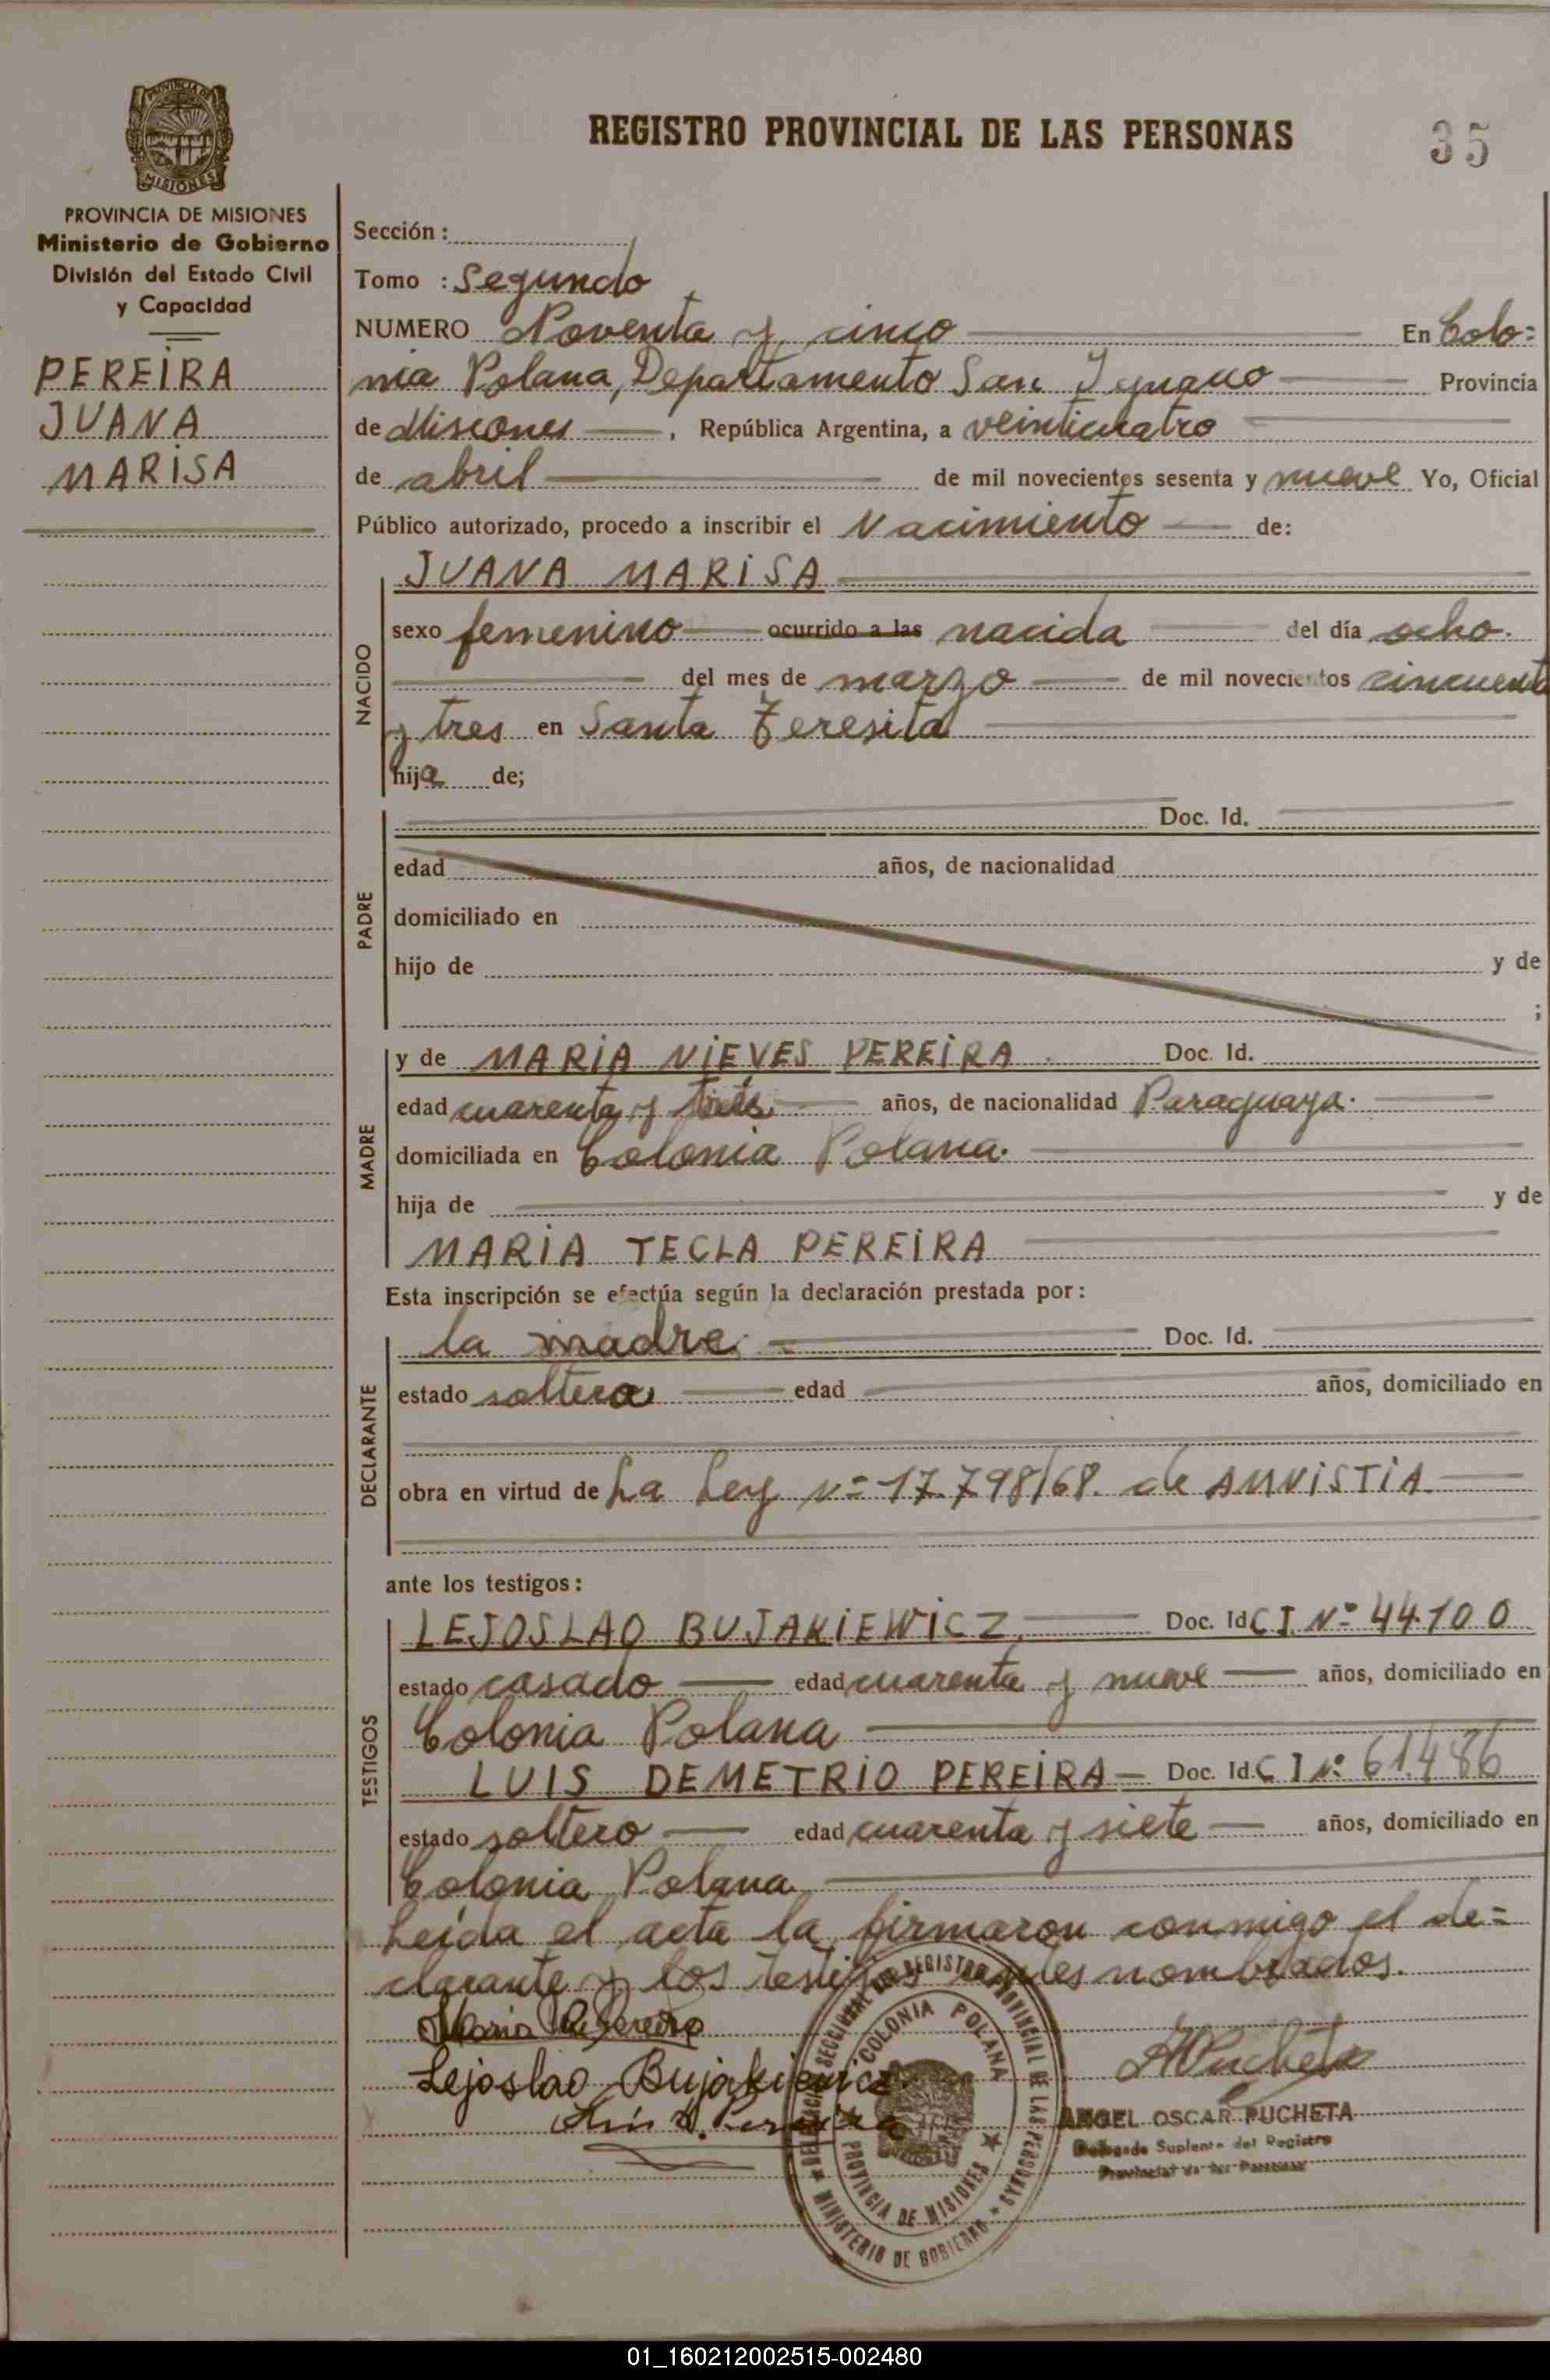 REGISTRO PROVINCIAL DE LAS PERSONAS
35
PROVINCIA DE MISIONES
PROVINCIA DE MISIONES
Ministerio de Gobierno
División del Estado Civil
y Capacidad
PEREIRA
JUANA
MARISA
Sección :
Tomo : Segundo
NUMERO Noventa y cinco En Colo=
nia Polana, Departamento San Ignacio Provincia
de Misiones , República Argentina, a veinticuatro
de abril de mil novecientos sesenta y nueve Yo, Oficial
Público autorizado, procedo a inscribir el Nacimiento de:
NACIDO
JUANA MARISA
sexo femenino ocurrido a las nacida del día ocho.
del mes de marzo de mil novecientos cincuenta
y tres en Santa Teresita
hija de;
PADRE
Doc. Id.
edad años, de nacionalidad
domiciliado en
hijo de y de
;
MADRE
y de MARIA NIEVES PEREIRA . Doc. Id.
edad cuarenta y años, de nacionalidad Paraguaya.
domiciliada en Colonia Polana.
hija de y de
MARIA TECLA PEREIRA
Esta inscripción se efectúa según la declaración prestada por :
DECLARANTE
la madre. Doc. Id.
estado soltera edad años, domiciliado en
obra en virtud de La Ley Nº 17.798/68. de AMNISTIA.
ante los testigos :
TESTIGOS
LEJOSLAO BUJAKIEWICZ, Doc. Id C I. Nº 44.100
estado casado edad cuarenta y nueve años, domiciliado en
Colonia Polana
LUIS DEMETRIO PEREIRA Doc. Id. C I Nº 61.486
estado soltero edad cuarenta y siete años, domiciliado en
Colonia Polana
Leída el acta la firmaron conmigo el de=
clarante y los testigos antes nombrados.
Maria Pereira
Lejoslao Bujakiewicz
Luis D. Pereira
APucheta
ANGEL OSCAR PUCHETA
Delegado Suplente del Registro
Provincial de las Personas
DELEGACION SECCIONAL DEL REGISTRO PROVINCIAL DE LAS PERSONAS
COLONIA POLANA
PROVINCIA DE MISIONES
MINISTERIO DE GOBIERNO
01_160212002515-002480